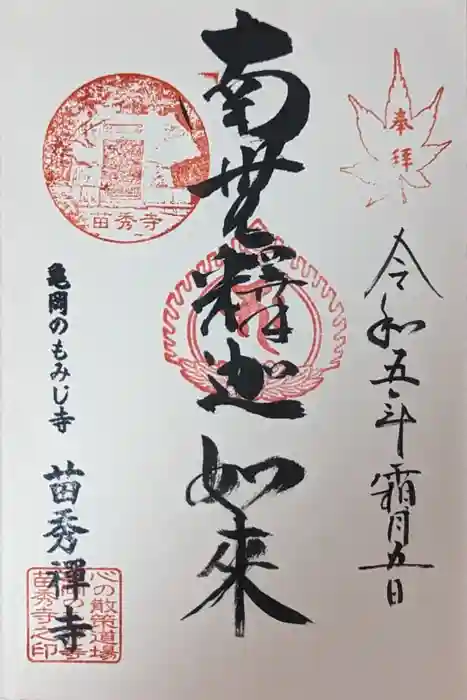 奉拝
令和五年霜月五日
南無釋迦如來
苗秀寺
亀岡のもみじ寺
苗秀禪寺
心の散策道場
苗秀寺之印